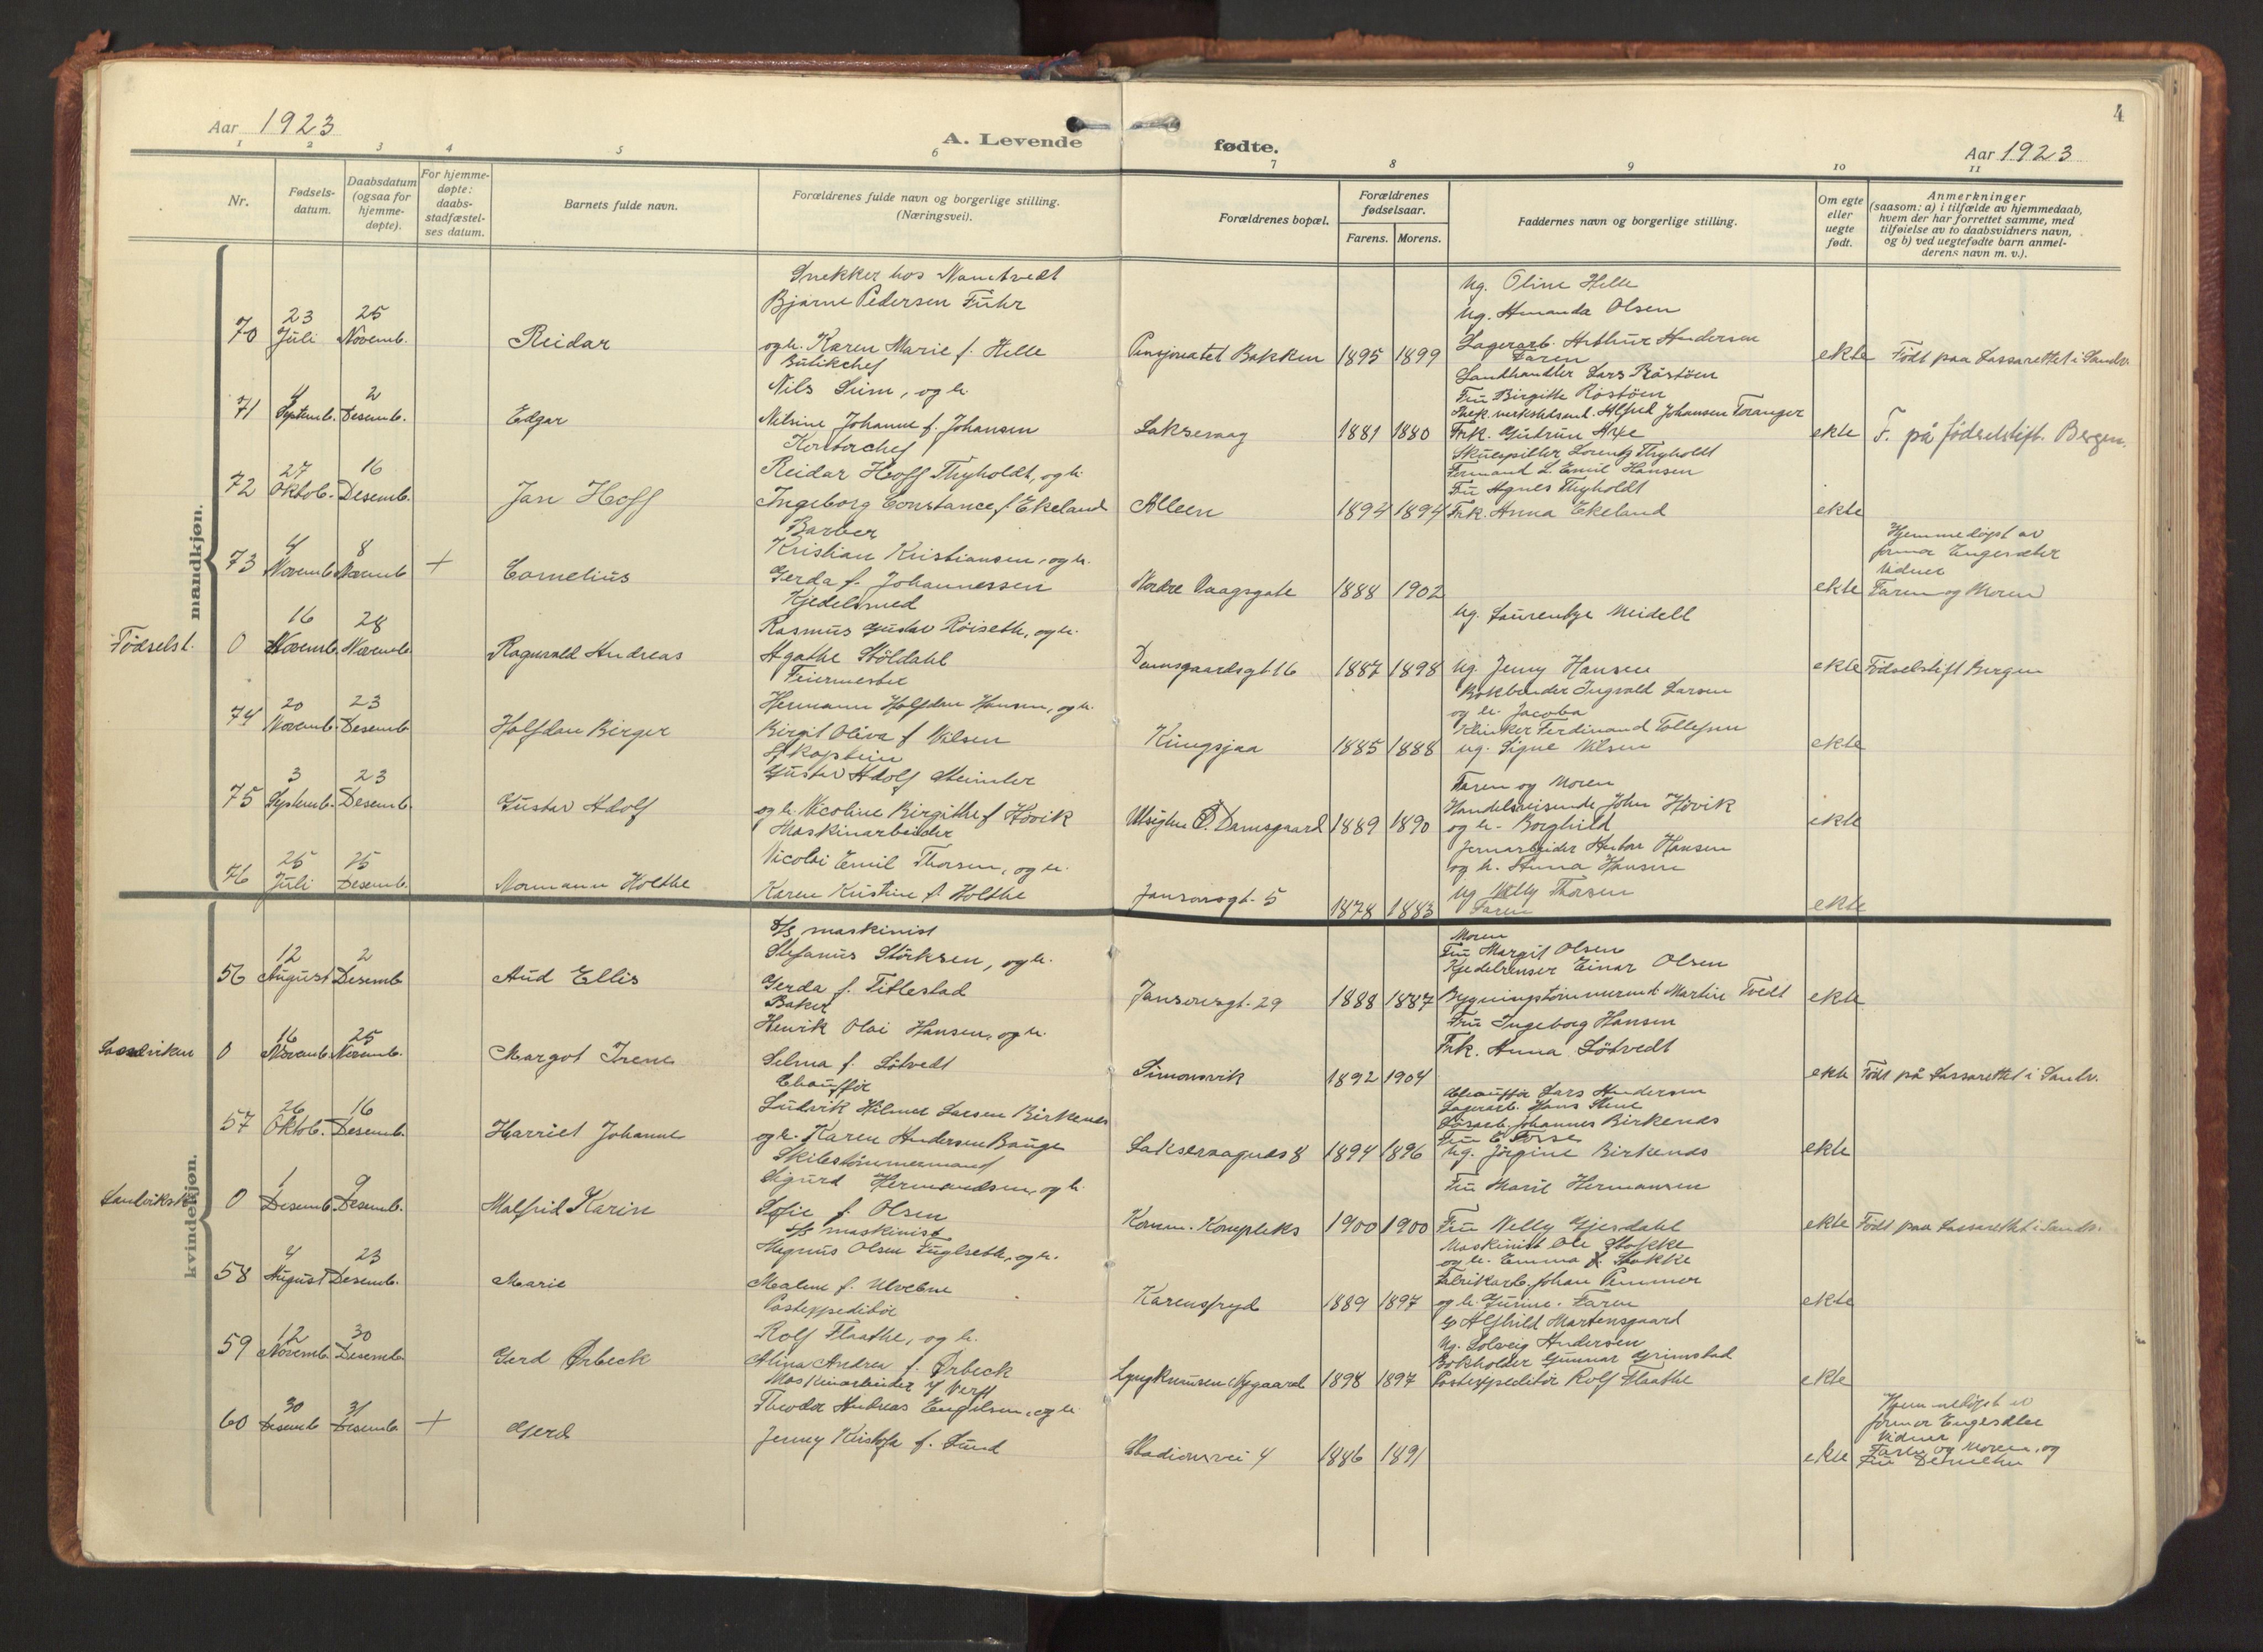 4
Aar 1923
A. Levende fødte.
Aar 1923
1 2 3 4 5 6 7 8 9 10 11
Nr.
Fødsels-
datum.
Daabsdatum
(ogsaa for
hjemme-
døpte).
For hjemme-
døpte:
daabs-
stadfæstel-
ses datum.
Barnets fulde navn.
Forældrenes fulde navn og borgerlige stilling.
(Næringsvei).
Forældrenes bopæl.
Forældrenes
fødselsaar.
Farens. Morens.
Faddernes navn og borgerlige stilling.
Om egte
eller
uegte
født.
Anmerkninger
(saasom: a) i tilfælde av hjemmedaab,
hvem der har forrettet samme, med
tilføielse av to daabsvidners navn,
og b) ved uegtefødte barn anmel-
derens navn m. v.).
mandkjøn.
70
23
Juli
25
Novemb.
Reidar
Snekker hos Namtvedt
Bjarne Pedersen Führ
og h. Karen Marie f. Helle
Pensjonatet Bakken
1895 1899
Ug. Oline Helle
Ug. Amanda Olsen
Lagerarb. Arthur Andersen
Faren
ekte
Født paa Lassarettet i Sandv.
71
4
Septemb.
2
Desemb.
Edgar
Butikchef
Nils Seim, og h.
Nilsine Johanne f. Johansen
Laksevaag
1881 1880
Landhandler Lars Röstöen
Fru Birgitte Röstöen
Alfred Johansen Foranger
Frk. Gudrun Axe
ekte
F. på Fødselstift. Bergen.
72
27
Oktob.
16
Desemb.
Jan Hoff
Kontorchef
Reidar Hoff Thyholdt, og h.
Ingeborg Constance f. Ekeland
Alleen
1894 1894
Skuespiller Lorentz Thyholdt
Formand L. Emil Hansen
Fru Agnes Thyholdt
Frk. Anna Ekeland
ekte
73
4
Novemb.
8
Novemb.
+
Cornelius
Barber
Kristian Kristiansen, og h.
Gerda f. Johannessen
Nordre Vaagsgate
1888 1902
ekte
Hjemmedøpt av
jormor Engesæter
Vidner
Faren og Moren
Fødselst.
0
16
Novemb.
28
Novemb.
Ragnvald Andreas
Kjedelsmed
Rasmus Gustav Röiseth, og h.
Agathe Stöldahl
Damsgaardsgt. 16
1887 1898
Ug. Laurentze Meidell
Ug. Jenny Hansen
ekte
Fødselstift Bergen
74
20
Novemb.
23
Desemb.
Halfdan Birger
Feiermester
Hermann Halfdan Hansen, og h.
Birgit Oliva f. Nilsen
Kringsjaa
1885 1888
Bokbinder Ingvald Larsen
og h. Jacoba
Klinker Ferdinand Tollefsen
ug. Signe Nilsen
ekte
75
3
Septemb.
23
Desemb.
Gustav Adolf
Skaptein
Gustav Adolf Steimler
og h. Nicoline Birgithe f. Hövik
Utsigten Ö. Damsgaard
1889 1890
Faren og Moren
Handelsreisende John Hövik
og h. Borghild
ekte
76
25
Juli
25
Desemb.
Normann Holthe
Maskinarbeider
Nicolai Emil Thorsen, og h.
Karen Kristine f. Holthe
Jansonsgt. 5
1878 1883
Jernarbeider Anton Hansen
og h. Anna Hansen
Ug Nelly Thorsen
Faren
ekte
kvindekjøn.
56
12
August
2
Desemb.
Aud Ellis
S/s maskinist
Stefanus Störksen, og h.
Gerda f. Titlestad
Jansonsgt. 29
1888 1887
Moren
Fru Margit Olsen
Kjedelrenser Einar Olsen
Bygningstömmermd. Martin Tvedt
ekte
Sandviken
0
16
Novemb.
25
Novemb.
Margot Irene
Baker
Henrik Olai Hansen, og h.
Selma f. Lötvedt
Simonsvik
1892 1904
Fru Ingeborg Hansen
Frk. Anna Lötvedt
ekte
Født på Lassarettet i Sandv.
57
26
Oktob.
16
Desemb.
Harriet Johanne
Chauffør
Ludvik Hilmar Larsen Birkenes
og h. Karen Andersen Bauge
Laksevaagnes 8
1894 1896
Chauffør Lars Andersen
Lagerarb. Hans Stene
Lösarb. Johannes Birkenes
Fru E. Fosse
Ug. Jörgine Birkenes
ekte
Sandviksk.
0
1
Desemb.
9
Desemb.
Malfrid Karin
Skibstömmermand
Sigurd Hermandsen, og h.
Sofie f. Olsen
Komm. Kompleks
1900 1900
Fru Marit Hermansen
Fru Nelly Gjesdahl
ekte
Født paa Lassarettet i Sandv.
58
4
August
23
Desemb.
Marie
S/s maskinist
Magnus Olsen Fuglseth, og h.
Malene f. Ulvebne
Karensfryd
1889 1897
Maskinist Ole Stokke
og h. Emma f. Stokke
Fabrikarb. Johan Pemmer
og h. Gurine. Faren
ekte
59
12
Novemb.
30
Desemb.
Gerd Ørbeck
Postexpeditör
Rolf Flaathe, og h.
Alina Andrea f. Ørbeck
Lyngknausen Nygaard
1898 1897
Alfhild Martensgaard
Ug. Solveig Andersen
Bokholder Gunnar Grimstad
Postexpeditör Rolf Flaathe
ekte
60
30
Desemb.
31
Desemb.
+
Gerd
Maskinarbeider v/ Verft
Theodor Andreas Engelsen, og h.
Jenny Kristofa f. Lund
Stadionsvei 4
1886 1891
ekte
Hjemmedøpt av
jormor Engesæter
Vidner
Faren og Moren, og
Fru